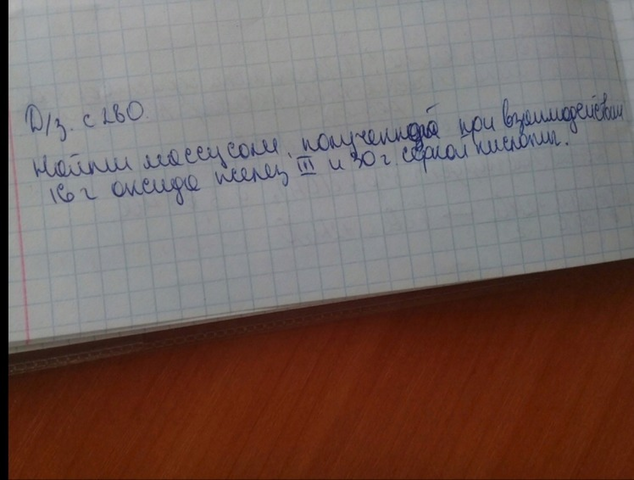 Д/з. с 280.
Найти массу соли, полученной при взаимодействии
16 г оксида желез III и 30 г. серной кислоты.